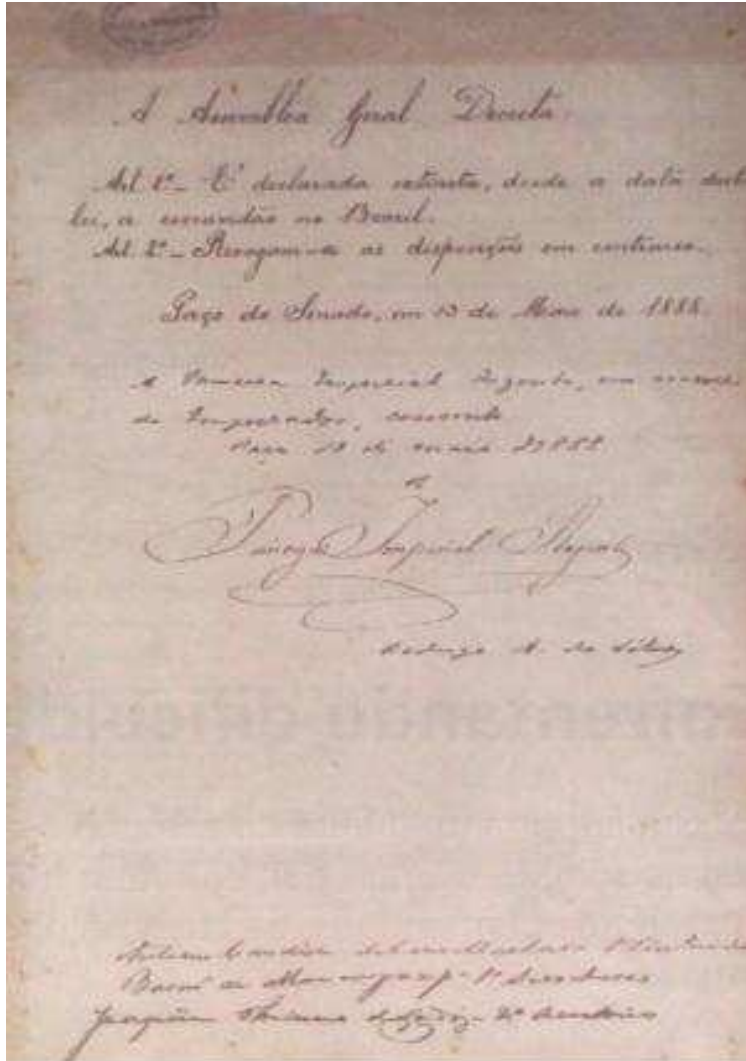 A Assemblea Geral Decreta:
Art. 1º_ É declarada extincta, desde a data desta
lei, a escravidão no Brazil.
Art. 2º_ Revogam-se as disposições em contrario.
Paço do Senado, em 13 de Maio de 1888.
A Princeza Imperial Regente, em nome
do Imperador, consente.
Paço 13 de maio de 1888
Princeza Imperial Regente
Rodrigo A. da Silva
1º Vice
Barão de Mamanguape 1º Secretario
Joaquim 2º Secretario